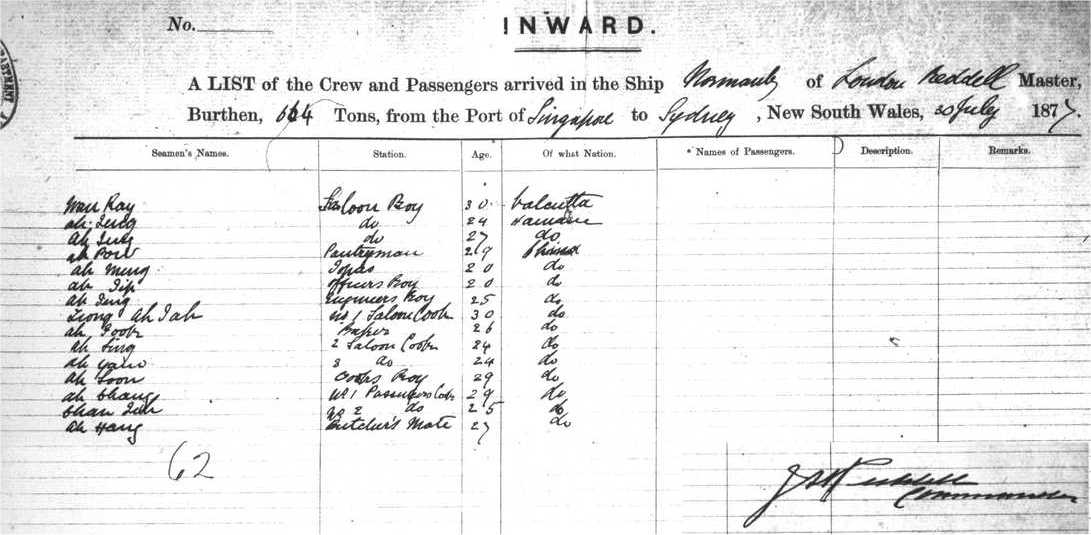 No.
INWARD.
A LIST of the Crew and Passengers arrived in the Ship Normanby of London Reddell Master,
Burthen, 664 Tons, from the Port of Singapore to Sydney, New South Wales, 20 July 1877
Seamen's Names. Station. Age. Of what Nation. * Names of Passengers. Description. Remarks.
Ray Saloon Boy 30 Calcutta
ah do 24
Ah do 27 do
ah Pantryman 29 China
ah Ming Topas 20 do
ah Officers Boy 20 do
ah Engineers Boy 25 do
Ah No 1 Saloon Cook 30 do
ah Baker 26 do
Ah Sing 2 Saloon Cook 24 do
ah 3 do 24 do
ah Soon Cooks Boy 29 do
ah Shang No 1 Passengers Cook 29 do
No 2 do 25 do
Ah Hang Butcher's Mate 27 do
62
Reddell
Commander